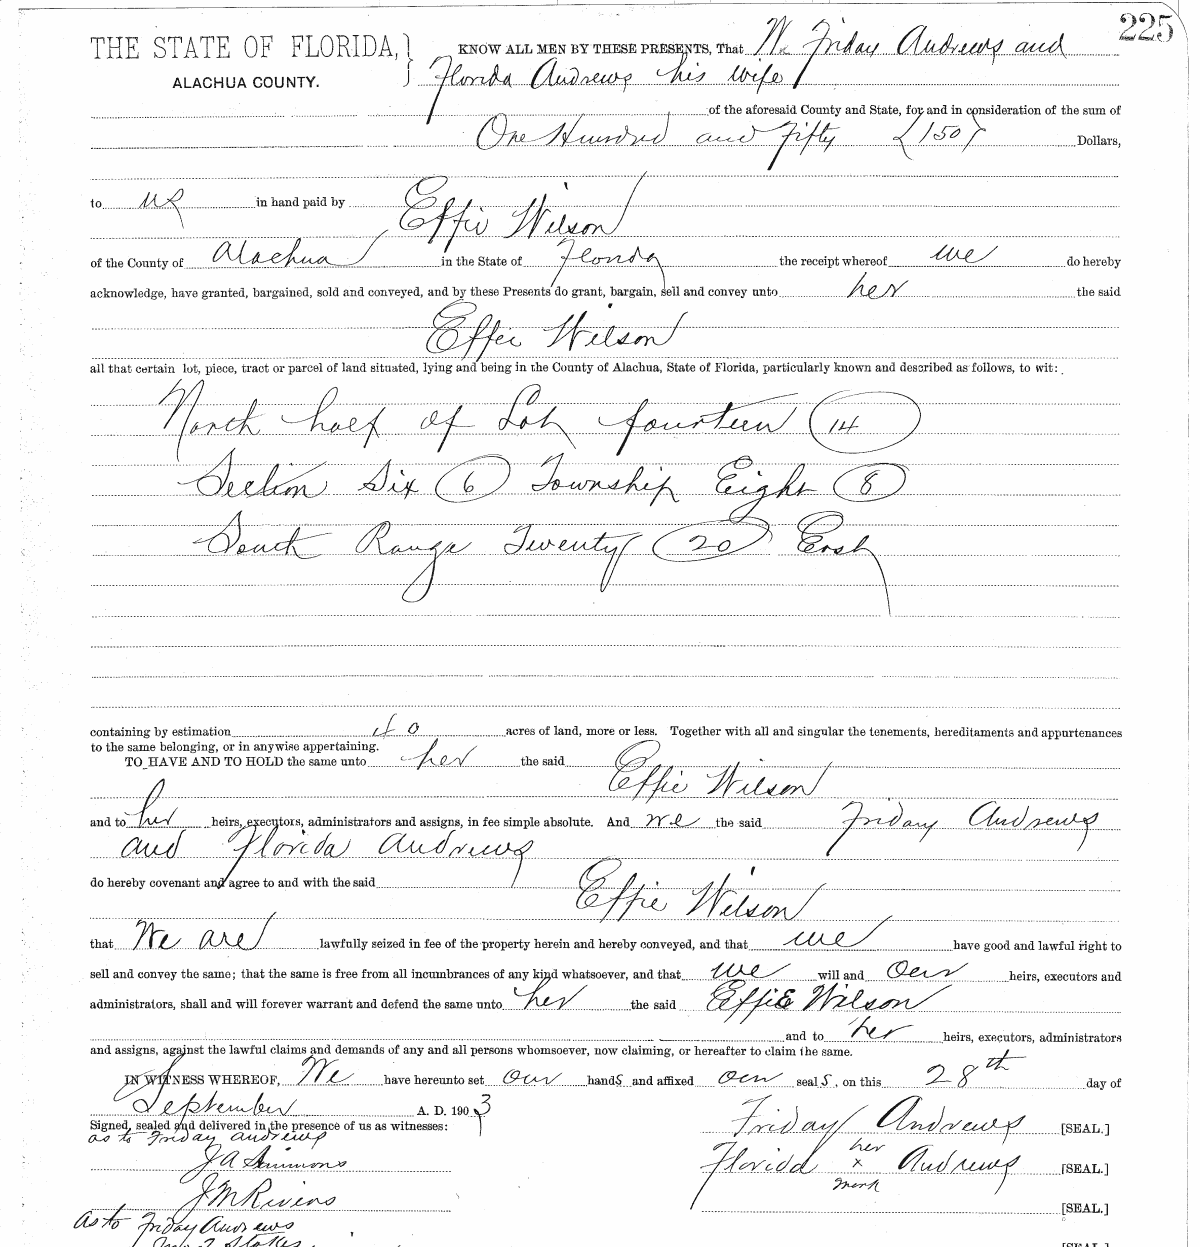 225
THE STATE OF FLORIDA,} KNOW ALL MEN BY THESE PRESENTS, That We Friday Andrews and
ALACHUA COUNTY. Florida Andrews his wife
of the aforesaid County and State, for and in consideration of the sum of
One Hundred and Fifty (150) Dollars,
to us in hand paid by
Effie Wilson
of the County of Alachua in the State of Florida the receipt whereof we do hereby
acknowledge, have granted, bargained, sold and conveyed, and by these Presents do grant, bargain, sell and convey unto her the said
Effie Wilson
all that certain lot, piece, tract or parcel of land situated, lying and being in the County of Alachua, State of Florida, particularly known and described as follows, to wit:
North half of Lot fourteen 14
Section Six 6 Township Eight 8
South Range Twenty 20 East
containing by estimation 40 acres of land, more or less. Together with all and singular the tenements, hereditaments and appurtenances
to the same belonging, or in anywise appertaining.
TO HAVE AND TO HOLD the same unto her the said
Effie Wilson
and to her heirs, executors, administrators and assigns, in fee simple absolute. And we the said Friday Andrews
and Florida Andrews
do hereby covenant and agree to and with the said
Effie Wilson
that We are lawfully seized in fee of the property herein and hereby conveyed, and that we have good and lawful right to
sell and convey the same; that the same is free from all incumbrances of any kind whatsoever, and that we will and our heirs, executors and
administrators, shall and will forever warrant and defend the same unto her the said Effie Wilson
and to her heirs, executors, administrators
and assigns, against the lawful claims and demands of any and all persons whomsoever, now claiming, or hereafter to claim the same.
IN WITNESS WHEREOF, We have hereunto set our hands and affixed our seals, on this 28th day of
September A. D. 1903
Signed, sealed and delivered in the presence of us as witnesses:
Friday Andrews [SEAL.]
as to Friday Andrews
J A Simmons
Florida her x mark Andrews [SEAL.]
J M Rivers
[SEAL.]
As to Friday Andrews
[SEAL.]